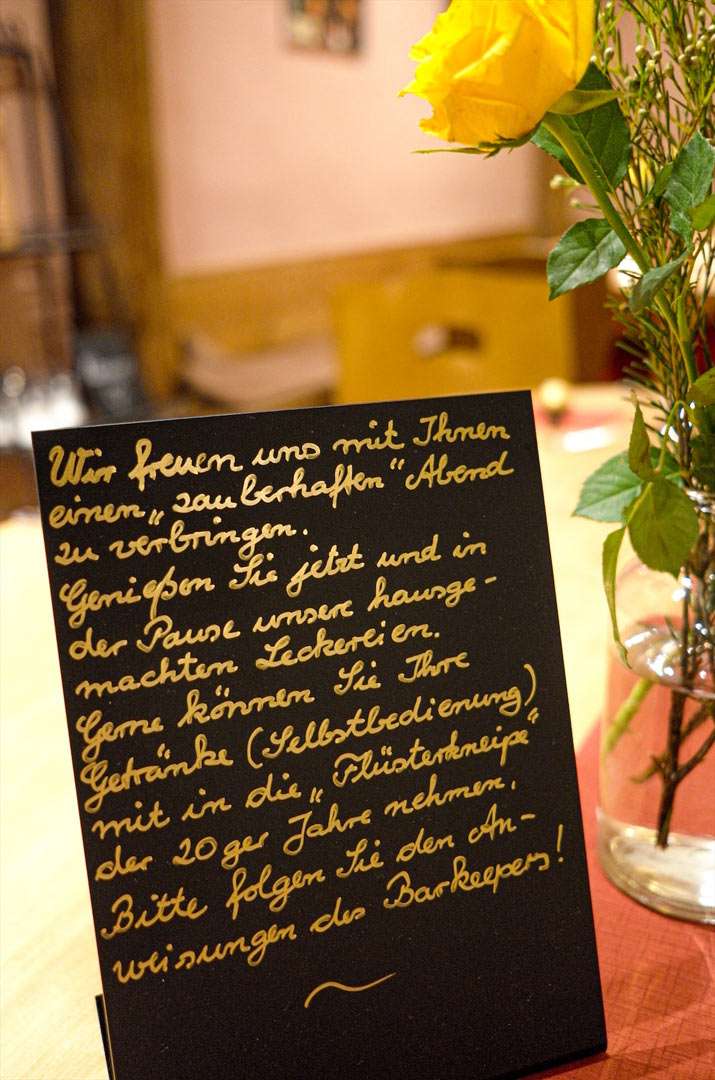 Wir freuen uns mit Ihnen
einen „zauberhaften“ Abend
zu verbringen.
Genießen Sie jetzt und in
der Pause unsere hausge-
machten Leckereien.
Gerne können Sie Ihre
Getränke (Selbstbedienung)
mit in die „Flüsterkneipe“
der 20ger Jahre nehmen.
Bitte folgen Sie den An-
weisungen des Barkeepers!